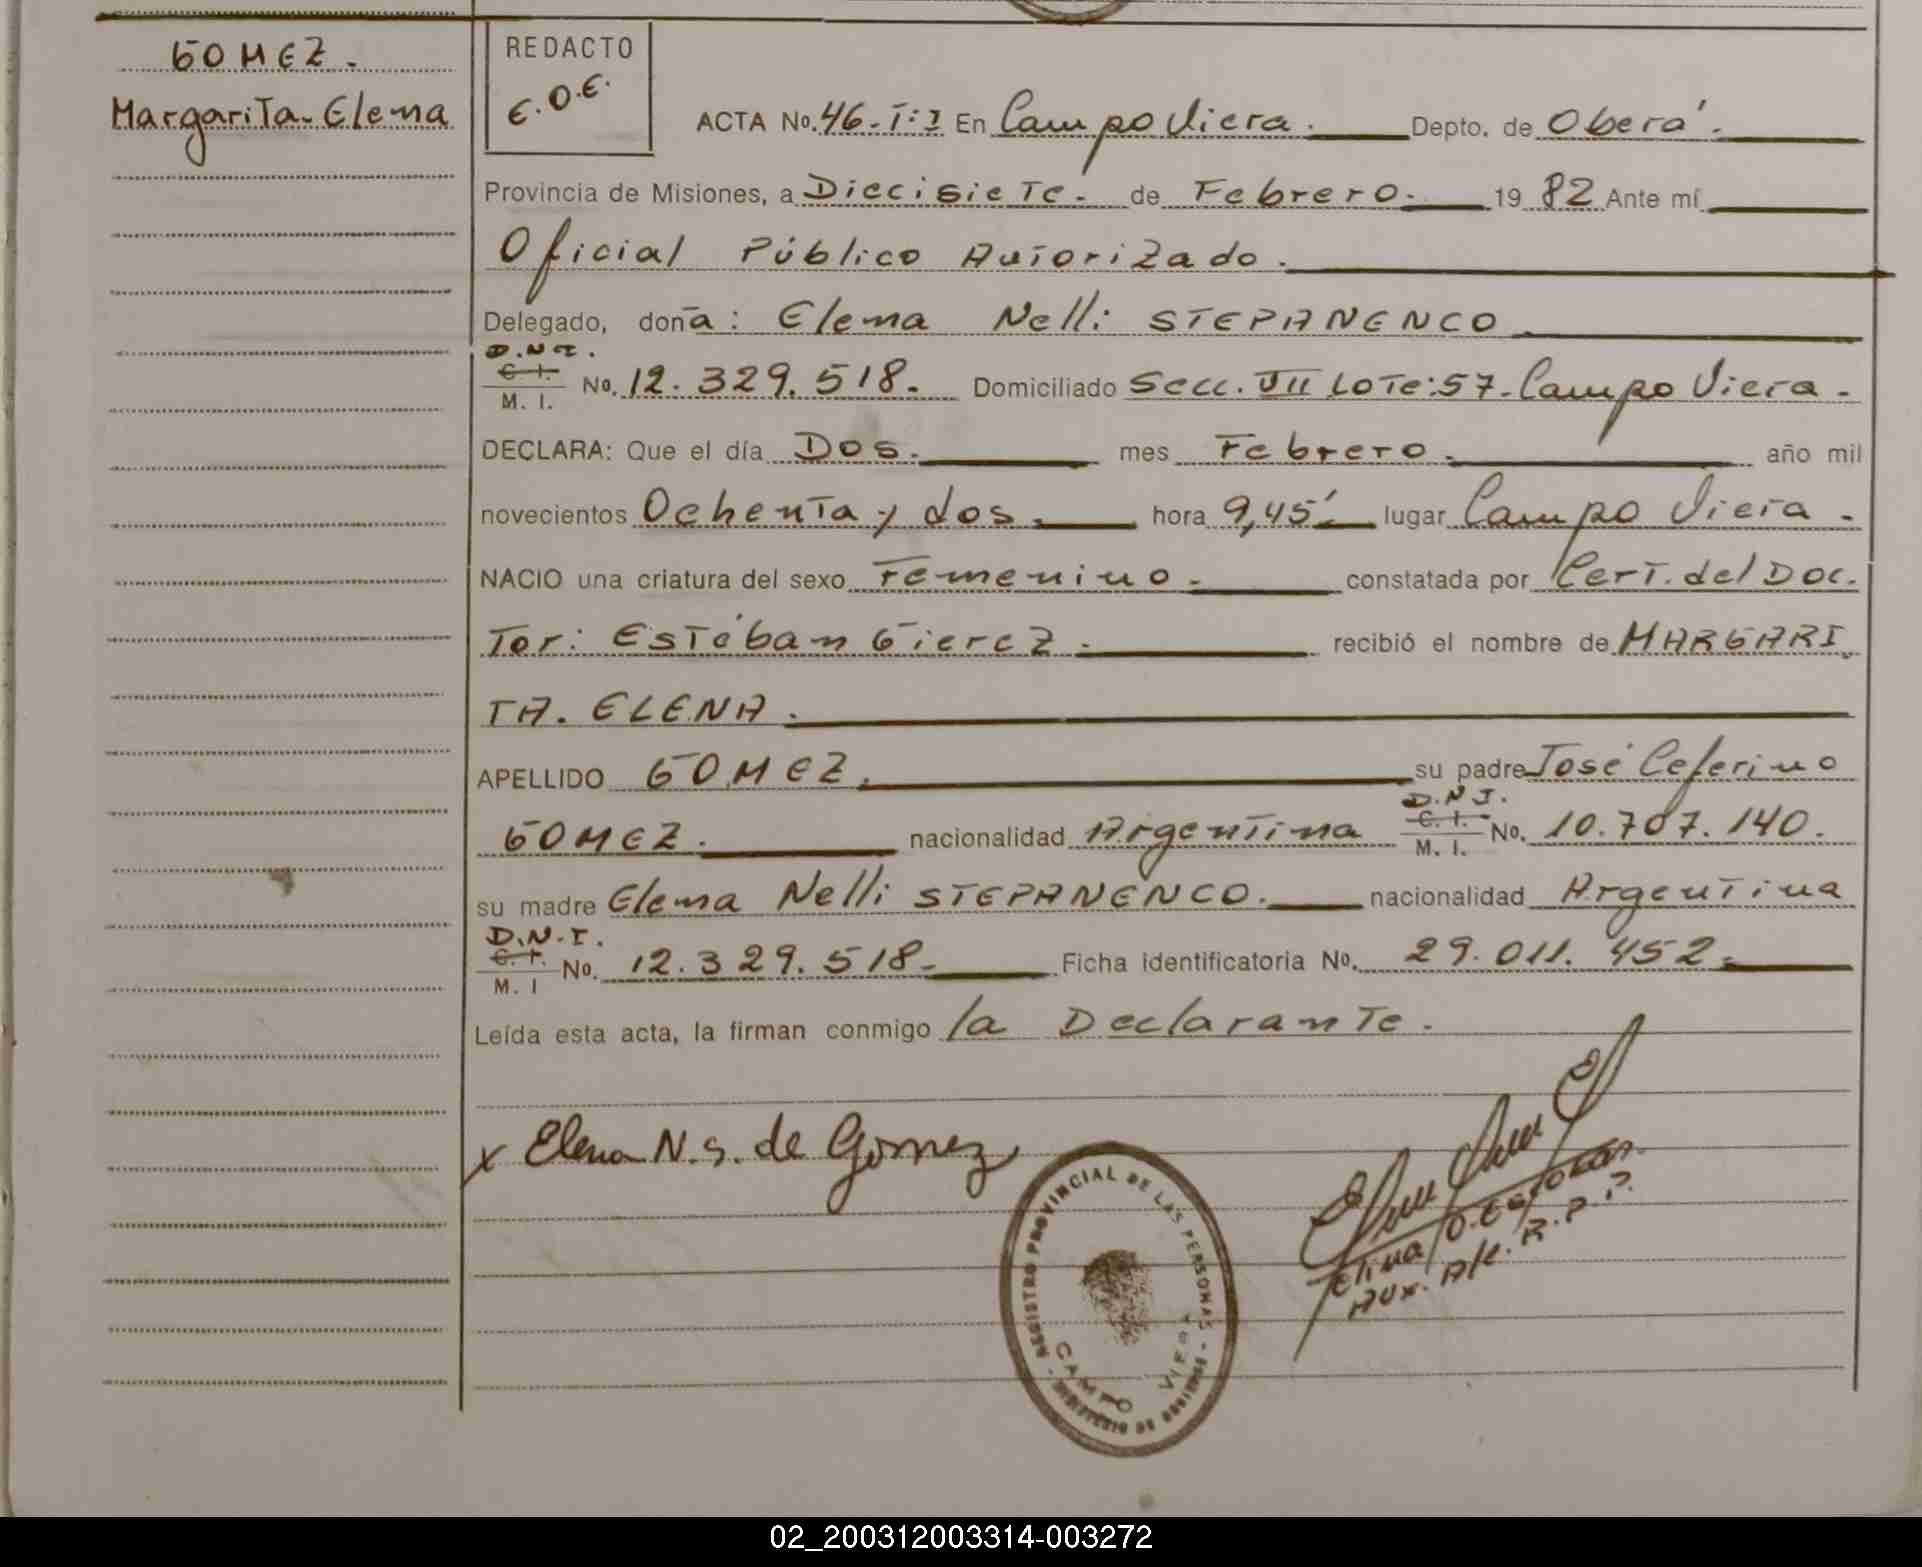 GOMEZ.
Margarita-Elena
REDACTO
E.O.E.
ACTA No. 46-Tº I En Campo Viera. Depto. de Oberá.
Provincia de Misiones, a Diecisiete. de Febrero. 1982 Ante mí
Oficial Público Autorizado.
Delegado, doña: Elena Nelli STEPANENCO
D.N.I.
C. I.
M. I.
No. 12.329.518. Domiciliado Secc. VII LOTE:57-Campo Viera.
DECLARA: Que el día Dos. mes Febrero. año mil
novecientos Ochenta y dos. hora 9,45' lugar Campo Viera.
NACIO una criatura del sexo Femenino. constatada por Cert. del Doc.
Tor: Estéban Gierez. recibió el nombre de MARGARI
TA. ELENA.
APELLIDO GOMEZ. su padre José Ceferino
GOMEZ. nacionalidad Argentina D.N.I. C. I. M. I. No. 10.707.140.
su madre Elena Nelli STEPANENCO. nacionalidad Argentina
D.N.I.
C. I.
M. I
No. 12.329.518. Ficha identificatoria No. 29.011.452.
Leída esta acta, la firman conmigo la Declarante.
x Elena N. S. de Gómez
REGISTRO PROVINCIAL DE LAS PERSONAS - MINISTERIO DE GOBIERNO -
CAMPO VIERA
Aux. A/c. R.P.P.
02_200312003314-003272